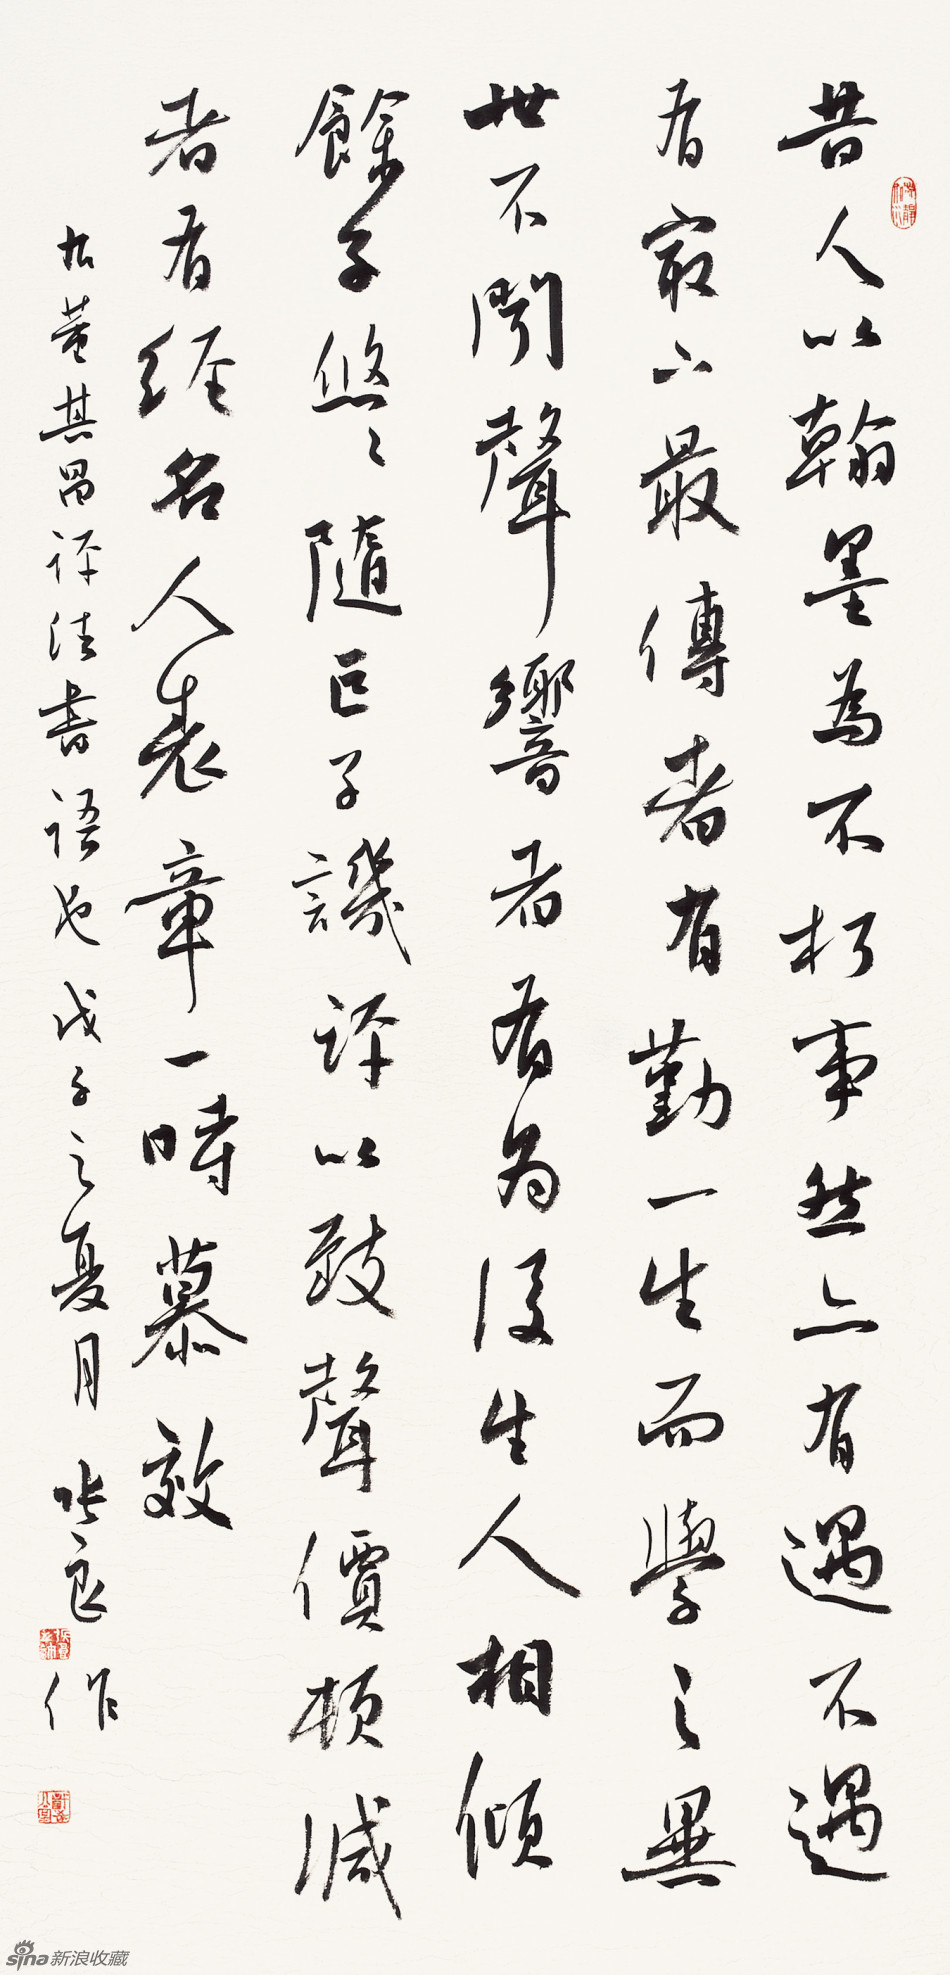 昔人以翰墨為不朽事然亦有遇不遇
有㝡下最傳者有勤一生而學之異
世不聞聲響者有為後生人相傾
餘子悠〻隨巨子譏評以致聲價頓減
者有經名人表章一時慕效
右董其昌評法書語也戊子之夏月 張良作
sina新浪收藏